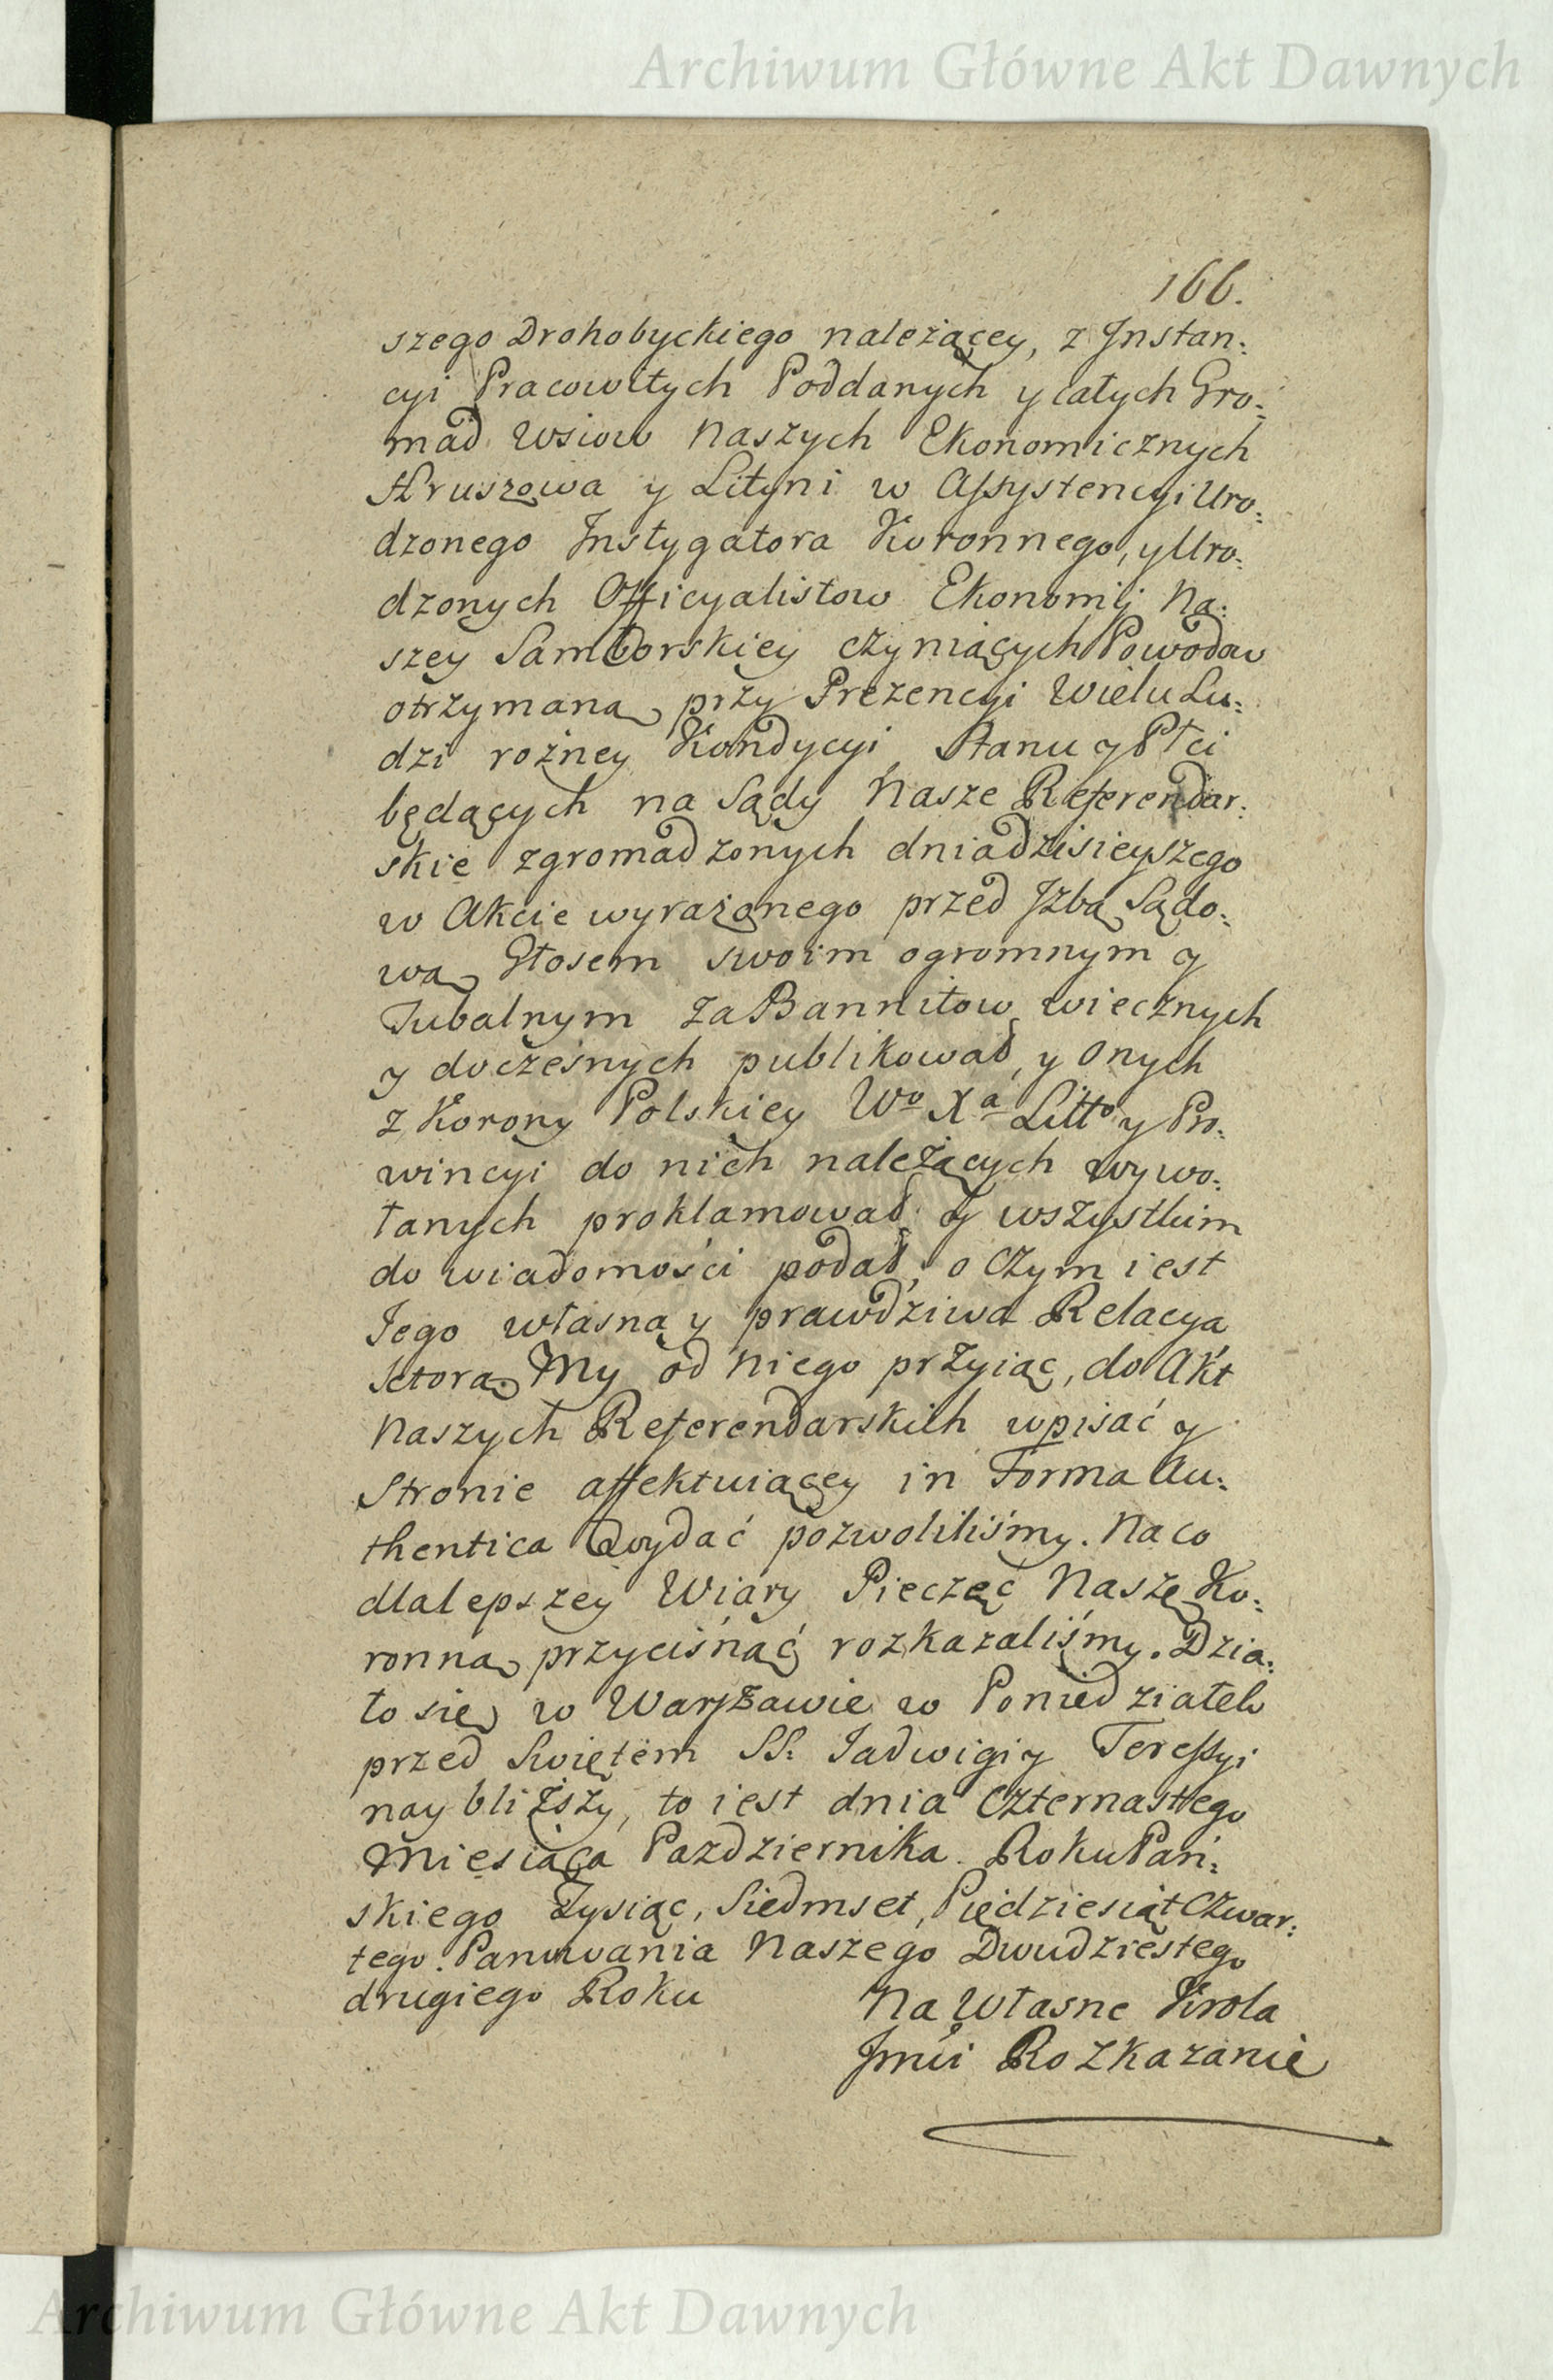 Archiwum Główne Akt Dawnych
166.
szego Drohobyckiego należącey, z Jnstan:
cyi Pracowitych Poddanych y całych Gro:
mad Wsiow Naszych Ekonomicznych
Hruszowa y Lityni w Assystencyi Uro:
dzonego Jnstygatora Koronnego, y Uro:
dzonych Officyalistow Ekonomij Na:
szey Samborskiey czyniących Powodow
otrzymaną przy Prezencyi Wielu Lu:
dzi rożney Kondycyi Stanu y Płci
będących na Sądy Nasze Referendar:
skie zgromadzonych dnia dzisieyszego
w Akcie wyrażonego przed Jzbą Sądo:
wą Głosem swoim ogromnym y
Tubalnym za Bannitow wiecznych
y doczesnych publikował, y onych
z Korony Polskiey Wo Xa Litto y Pro:
wincyi do nich należących wywo:
łanych proklamował y wszystkim
do wiadomości podał, o czym iest
Jego własna y prawdziwa Relacya
ktorą My od niego przyiąć, do Akt
Naszych Referendarskich wpisać y
Stronie affektuiącey in Forma Au:
thentica wydać pozwoliliśmy. Na co
dla lepszey Wiary Pieczęć Naszę Ko:
ronną przycisnąć rozkazaliśmy. Dzia:
ło się w Warszawie w Poniedziałek
przed Swiętem SS. Jadwigi y Teressyi
naybliższy, to iest dnia Czternastego
Miesiąca Pazdziernika. Roku Pań:
skiego Tysiąc, Siedmset, Pięćdziesiąt Czwar:
tego. Panowania Naszego Dwudziestego
drugiego Roku
Na Własne Krola
Jmći Rozkazanie
Archiwum Główne Akt Dawnych